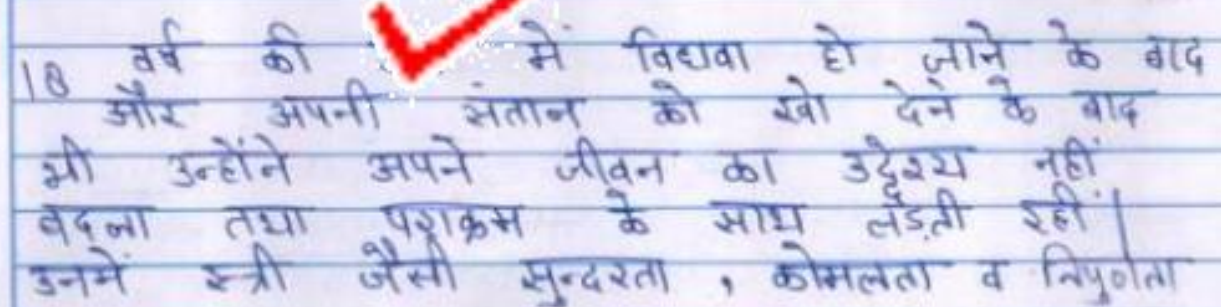 18 वर्ष की में विधवा हो जाने के बाद
और अपनी संतान को खो देने के बाद
भी उन्होंने अपने जीवन का उद्देश्य नहीं
बदला तथा पराक्रम के साथ लड़ती रहीं।
उनमें स्त्री जैसी सुन्दरता, कोमलता व निपुणता